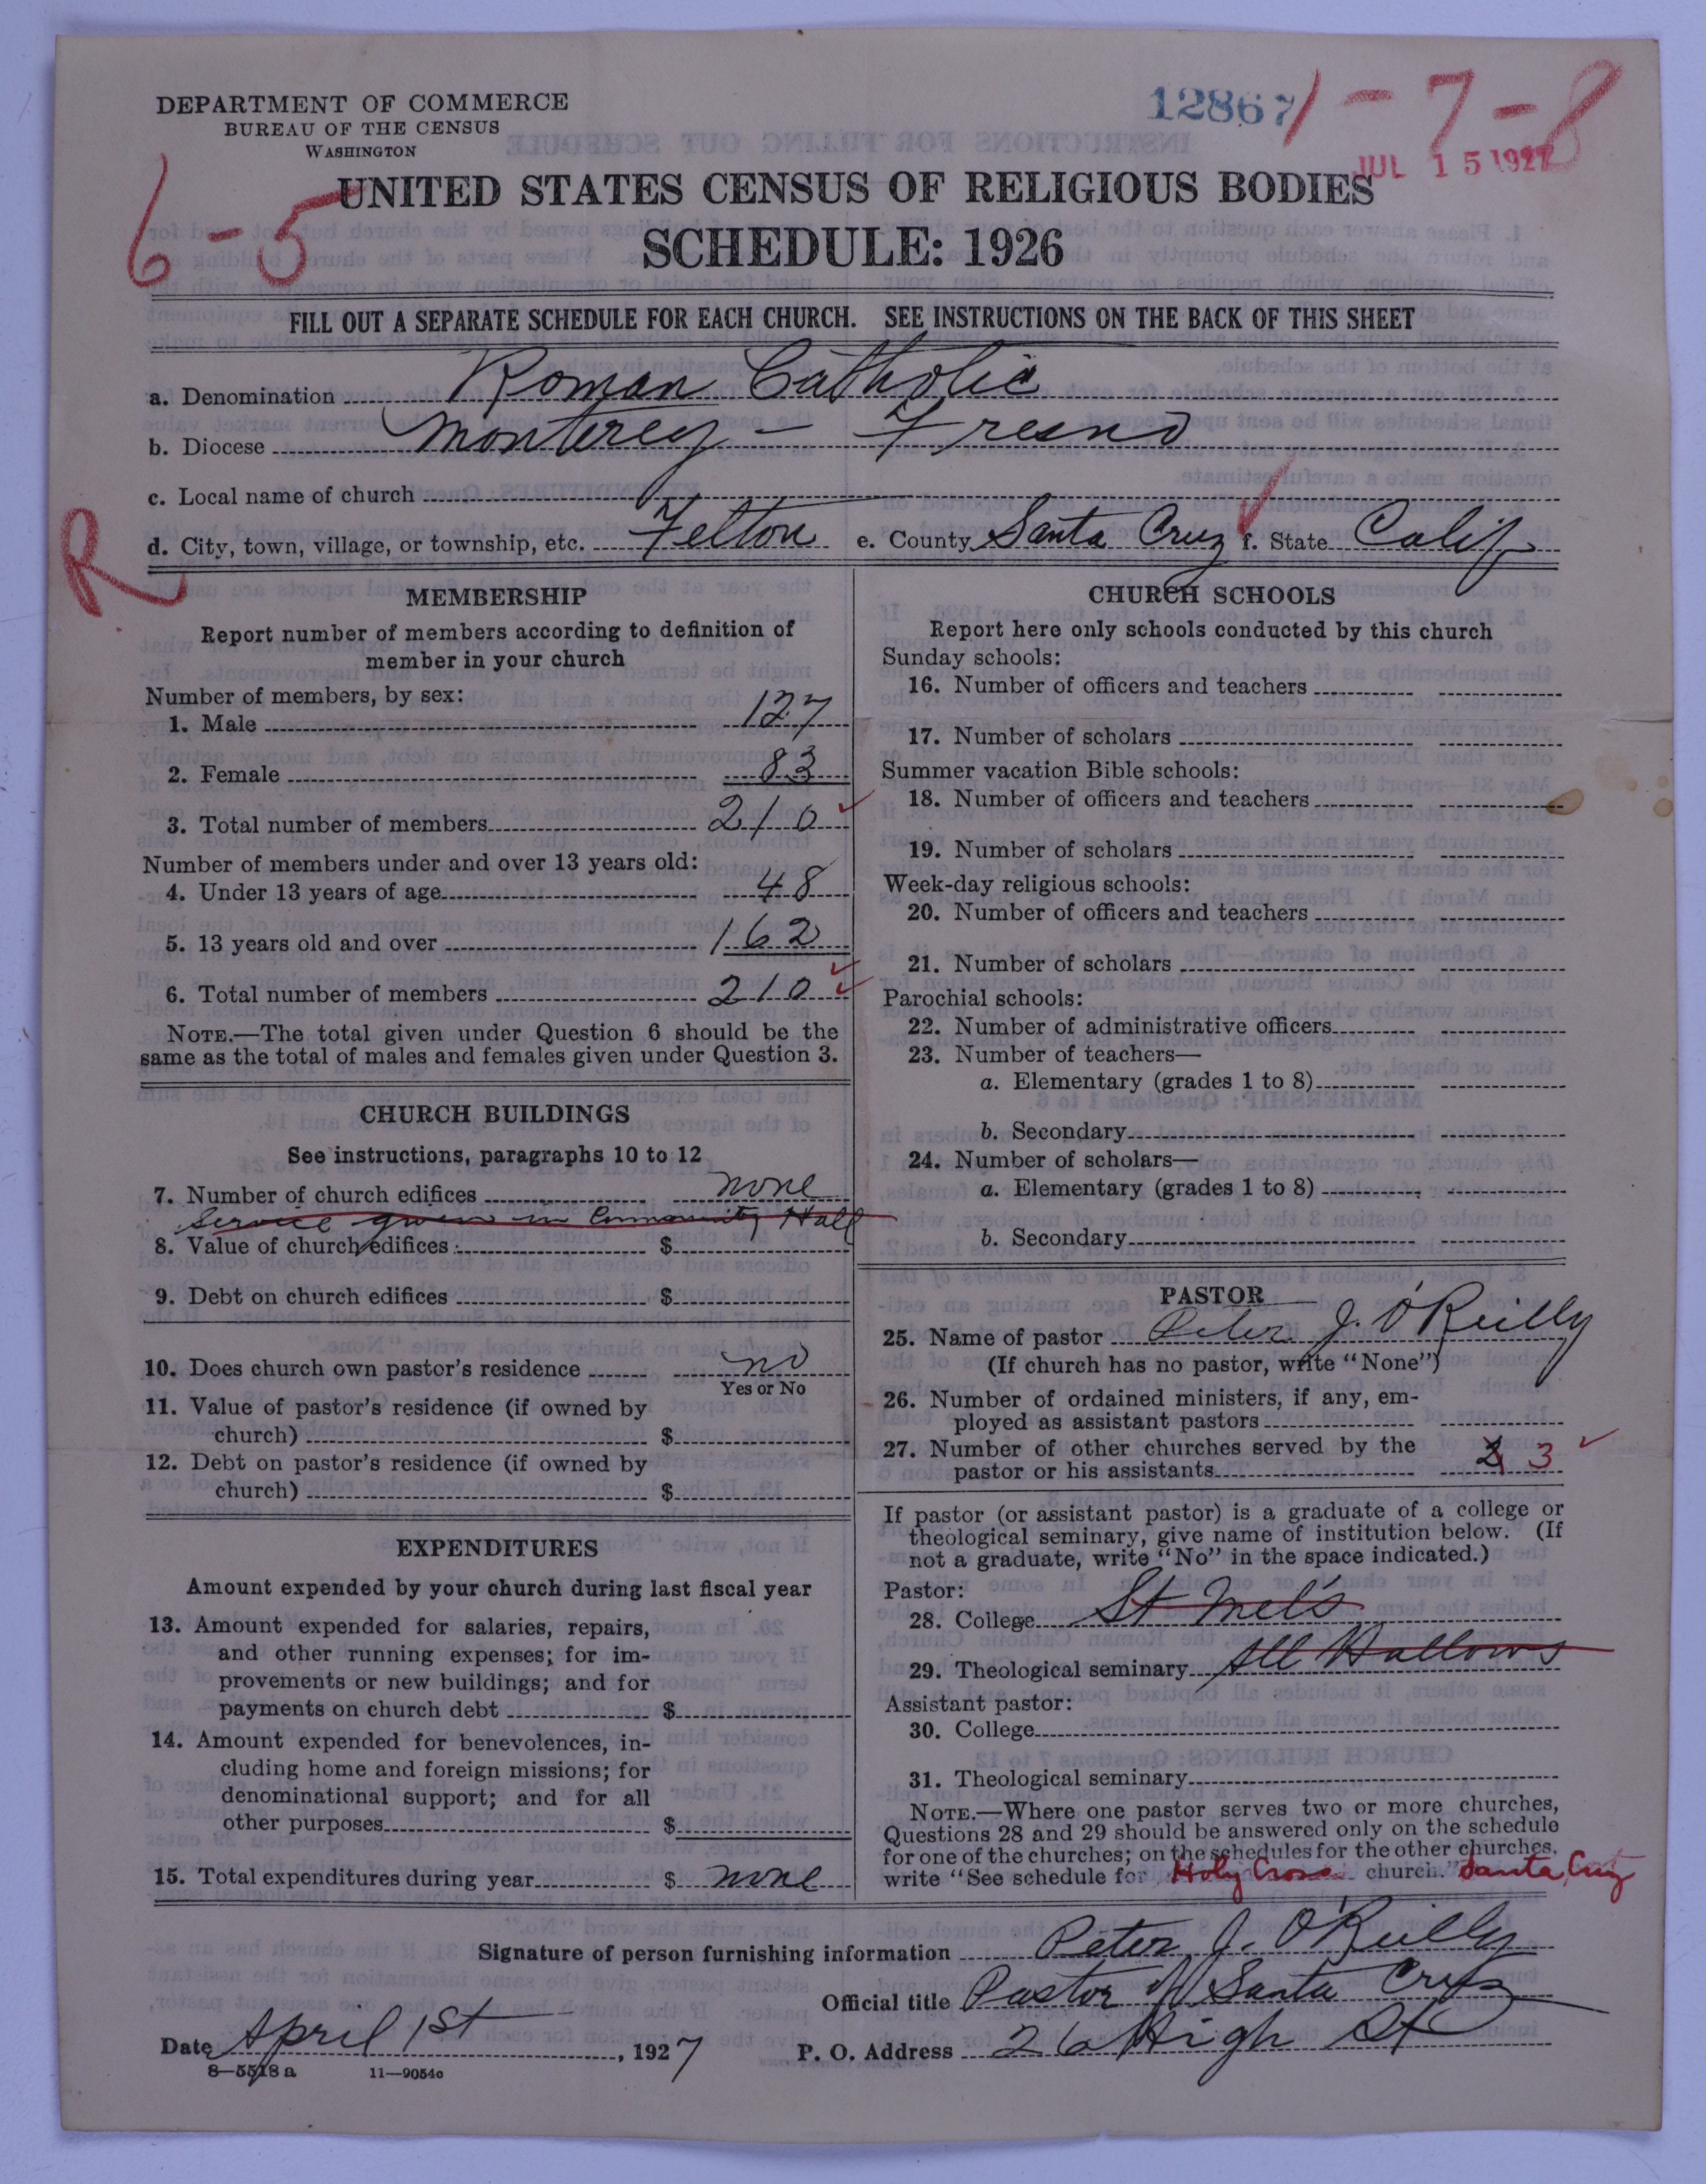 DEPARTMENT OF COMMERCE
BUREAU OF THE CENSUS
WASHINGTON
12867
1-7-8
JUL 15 1927
6-5
UNITED STATES CENSUS OF RELIGIOUS BODIES
SCHEDULE: 1926
FILL OUT A SEPARATE SCHEDULE FOR EACH CHURCH. SEE INSTRUCTIONS ON THE BACK OF THIS SHEET
a. Denomination Roman Catholic
b. Diocese Monterey - Fresno
c. Local name of church
d. City, town, village, or township, etc. Felton e. County Santa Cruz f. State Calif
R
MEMBERSHIP
Report number of members according to definition of
member in your church
Number of members, by sex:
1. Male 127
2. Female 83
3. Total number of members 210
Number of members under and over 13 years old:
4. Under 13 years of age 48
5. 13 years old and over 162
6. Total number of members 210
NOTE.—The total given under Question 6 should be the
same as the total of males and females given under Question 3.
CHURCH BUILDINGS
See instructions, paragraphs 10 to 12
7. Number of church edifices none
Service given in Community Hall
8. Value of church edifices $
9. Debt on church edifices $
10. Does church own pastor's residence no
Yes or No
11. Value of pastor's residence (if owned by
church) $
12. Debt on pastor's residence (if owned by
church) $
EXPENDITURES
Amount expended by your church during last fiscal year
13. Amount expended for salaries, repairs,
and other running expenses; for im-
provements or new buildings; and for
payments on church debt $
14. Amount expended for benevolences, in-
cluding home and foreign missions; for
denominational support; and for all
other purposes $
15. Total expenditures during year $ none
CHURCH SCHOOLS
Report here only schools conducted by this church
Sunday schools:
16. Number of officers and teachers
17. Number of scholars
Summer vacation Bible schools:
18. Number of officers and teachers
19. Number of scholars
Week-day religious schools:
20. Number of officers and teachers
21. Number of scholars
Parochial schools:
22. Number of administrative officers
23. Number of teachers—
a. Elementary (grades 1 to 8)
b. Secondary
24. Number of scholars—
a. Elementary (grades 1 to 8)
b. Secondary
PASTOR
25. Name of pastor Peter J. O'Reilly
(If church has no pastor, write "None")
26. Number of ordained ministers, if any, em-
ployed as assistant pastors
27. Number of other churches served by the
pastor or his assistants 3
If pastor (or assistant pastor) is a graduate of a college or
theological seminary, give name of institution below. (If
not a graduate, write "No" in the space indicated.)
Pastor:
28. College St Mel's
29. Theological seminary All Hallows
Assistant pastor:
30. College
31. Theological seminary
NOTE.—Where one pastor serves two or more churches,
Questions 28 and 29 should be answered only on the schedule
for one of the churches; on the schedules for the other churches,
write "See schedule for Holy Cross church." Santa Cruz
Signature of person furnishing information Peter J. O'Reilly
Official title Pastor of Santa Cruz
Date April 1st, 1927 P. O. Address 26 High St
8—5518 a 11—9054c